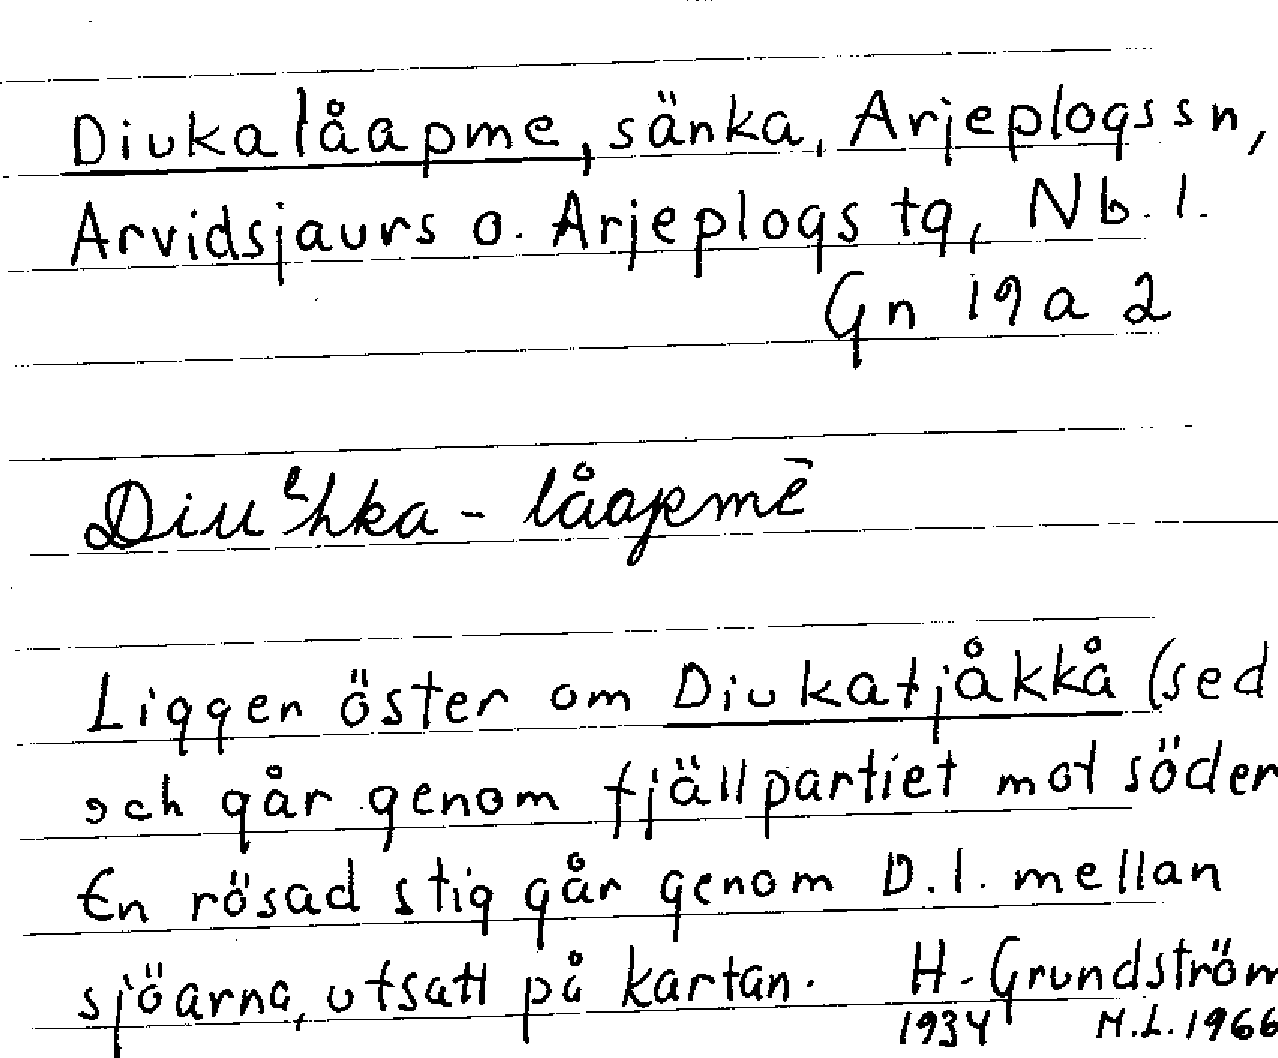 Divkalåapme, sänka, Arjeplogs sn,
Arvidsjaurs o. Arjeplogs tg, Nb. l.
Gn 19 a 2
Diuʿhka - låapmē
Ligger öster om Divkatjåkkå (sed
och går genom fjällpartiet mot söder
En rösad stig går genom D.l. mellan
sjöarna, utsatt på kartan. H. Grundström
1934 M.L. 1966